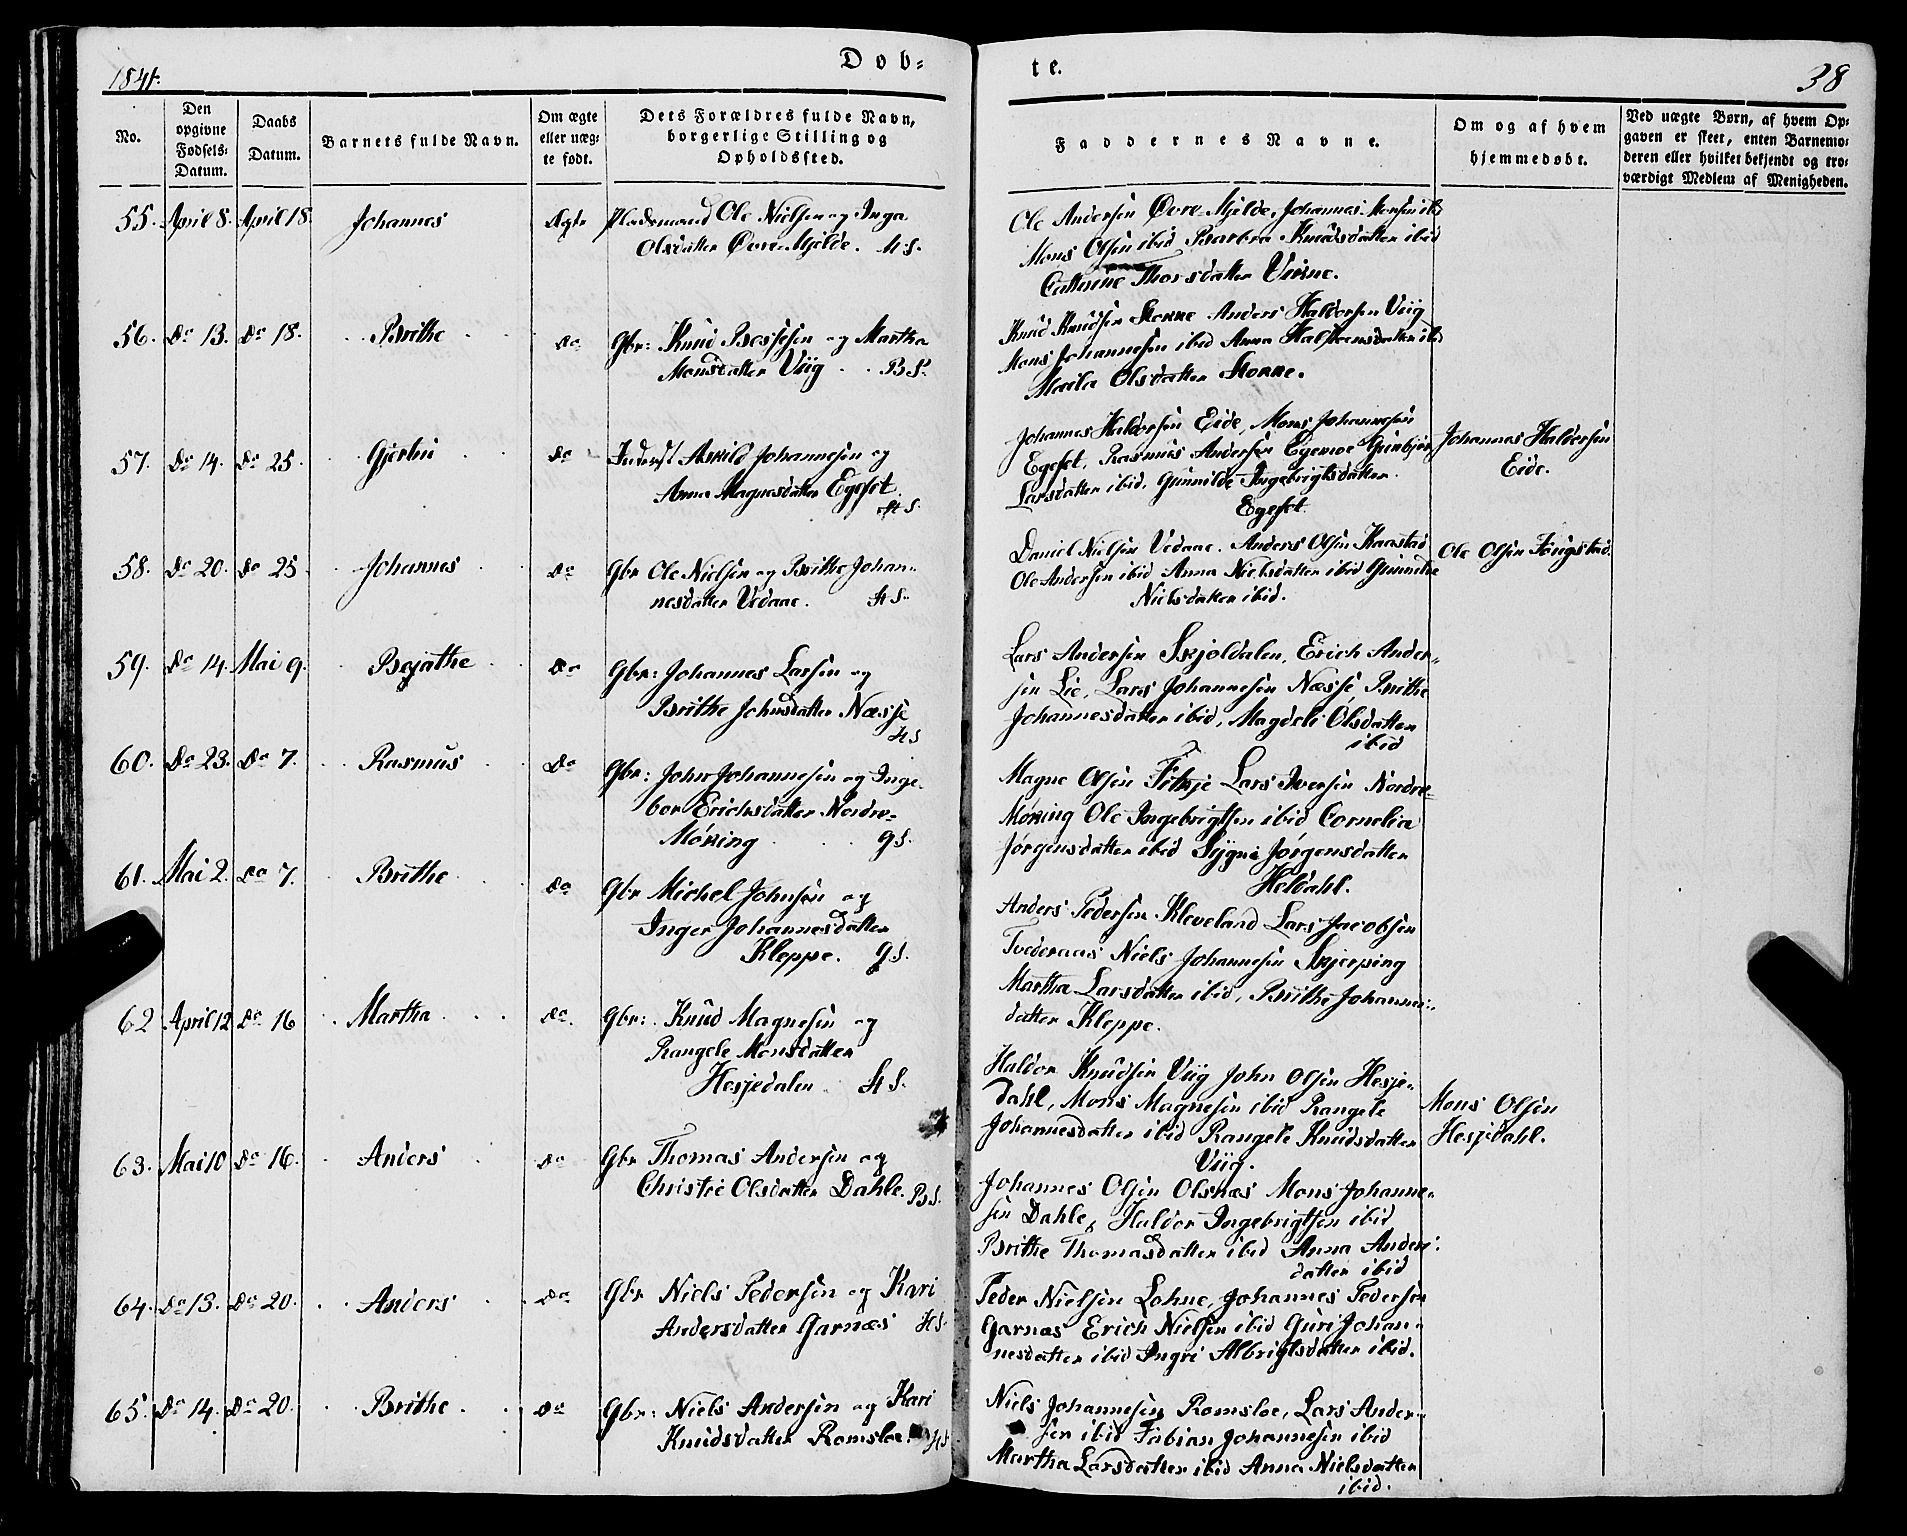 1841.
Døb-
te.
38
No.
Den opgivne Fødsels-Datum.
Daabs Datum.
Barnets fulde Navn.
Om ægte eller uæg-te født.
Dets Forældres fulde Navn, borgerlige Stilling og Opholdssted.
Faddernes Navne.
Om og af hvem hjemmedøbt.
Ved uægte Børn, af hvem Op-
gaven er skeet, enten Barnemo-
deren eller hvilket bekjendt og tro-
værdigt Medlem af Menigheden.
55. April 8. April 18. Johannes Ægte Pladsmand Ole Nielsen og Inga
Olsdatter Øvre-Mjelde. HS.
Ole Andersen Øvre-Mjelde, Johannes Monsen ib
Mons Olsen ibid Barbra Knudsdatter ibid
Cathrine Thorsdatter Veirne.
56. Do 13. Do 18. Brithe Do Gbr: Knud Bessesen og Martha
Monsdatter Viig BS.
Knud Knudsen Storre Anders Haldorsen Viig
Mons Johannesen ibid Anna Halstensdatter ib
Marila Olsdatter Storre.
57. Do 14. Do 25. Gjerlui Do Inderst Askild Johannesen og
Anna Magnesdatter Egeset. HS.
Johannes Haldorsen Eide, Mons Johannesen
Egeset, Rasmus Andersen Egemoe Gunbjør
Larsdatter ibid, Gunnilde Ingebrigtsdatter
Egeset.
Johannes Haldorsen
Eide.
58. Do 20. Do 25 Johannes Do Gbr Ole Nielsen og Brithe Johan-
nesdatter Vedaae. HS.
Daniel Nielsen Vedaae. Anders Olsen Kaarstad
Ole Andersen ibid Anna Nielsdatter ibid Gunnilde
Nielsdatter ibid.
Ole Olsen Tungstad
59. Do 14. Mai 9. Beathe Do Gbr: Johannes Larsen og
Brithe Johnsdatter Næsse
HS
Lars Andersen Skjoldalen, Erich Ander-
sen Lie, Lars Johannesen Næsse, Brithe
Johannesdatter ibid, Magdeli Olsdatter
ibid
60. Do 23. Do 7. Rasmus Do Gbr: John Johannesen og Inge-
bor Erichsdatter Nordre-
Møking GS.
Magne Olsen Fitksje Lars Iversen Nordre-
Møking Ole Ingebrigtsen ibid Cornelia
Jørgensdatter ibid Sygni Jørgensdatter
Heldahl.
61. Mai 2. Do 7. Brithe Do Gbr Michel Johnsen og
Inger Johannesdatter
Kleppe. GS.
Anders Pedersen Kleveland Lars Jacobsen
Tvederaas Niels Johannesen Skjerping
Martha Larsdatter ibid, Brithe Johannes-
datter Kleppe.
62 April 12 Do 16 Martha Do. Gbr: Knud Magnesen og
Rangele Monsdatter
Hesjedalen HS.
Haldor Knudsen Viig John Olsen Hesje-
dahl, Mons Magnesen ibid Rangele
Johannesdatter ibid Rangele Knudsdatter
Viig.
Mons Olsen
Hesjedahl.
63. Mai 10 Do 16. Anders Do Gbr Thomas Andersen og
Christie Olsdatter Dahle. BS.
Johannes Olsen Olsnæs Mons Johanne-
sen Dahle, Haldor Ingebrigtsen ibid
Brithe Thomasdatter ibid Anna Anders-
datter ibid
64. Do 13. Do 20. Anders Do Gbr Niels Pedersen og Kari
Andersdatter Garnæs HS.
Peder Nielsen Lohne, Johannes Pedersen
Garnæs Erich Nielsen ibid Guri Johan-
nesdatter ibid Ingri Albrigtsdatter ibid.
65. Do 14. Do 20. Brithe Do Gbr: Niels Andersen og Kari
Knudsdatter Romsloe. HS
Niels Johannesen Romsloe, Lars Ander-
sen ibid Fabian Johannesen ibid
Martha Larsdatter ibid Anna Nielsdatter
ibid.